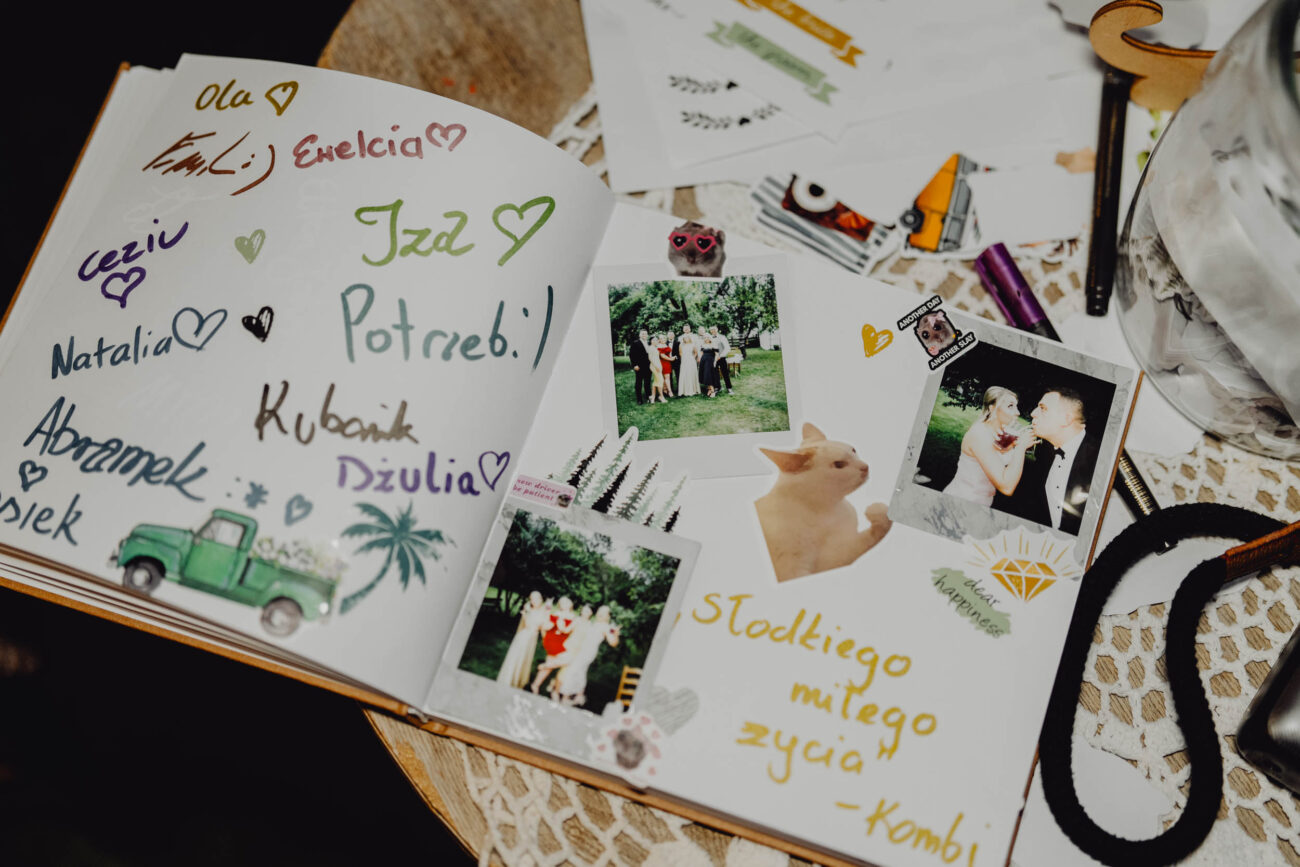 Ola
Emili:)
Ewelcia
Iza
Ceziu
Natalia
Potrzeb:)
Kubanik
Abramek
Dżulia
siek
ANOTHER DAY
ANOTHER SLAY
new driver
be patient
dear
happiness
„Słodkiego
miłego
życia"
- Kombi